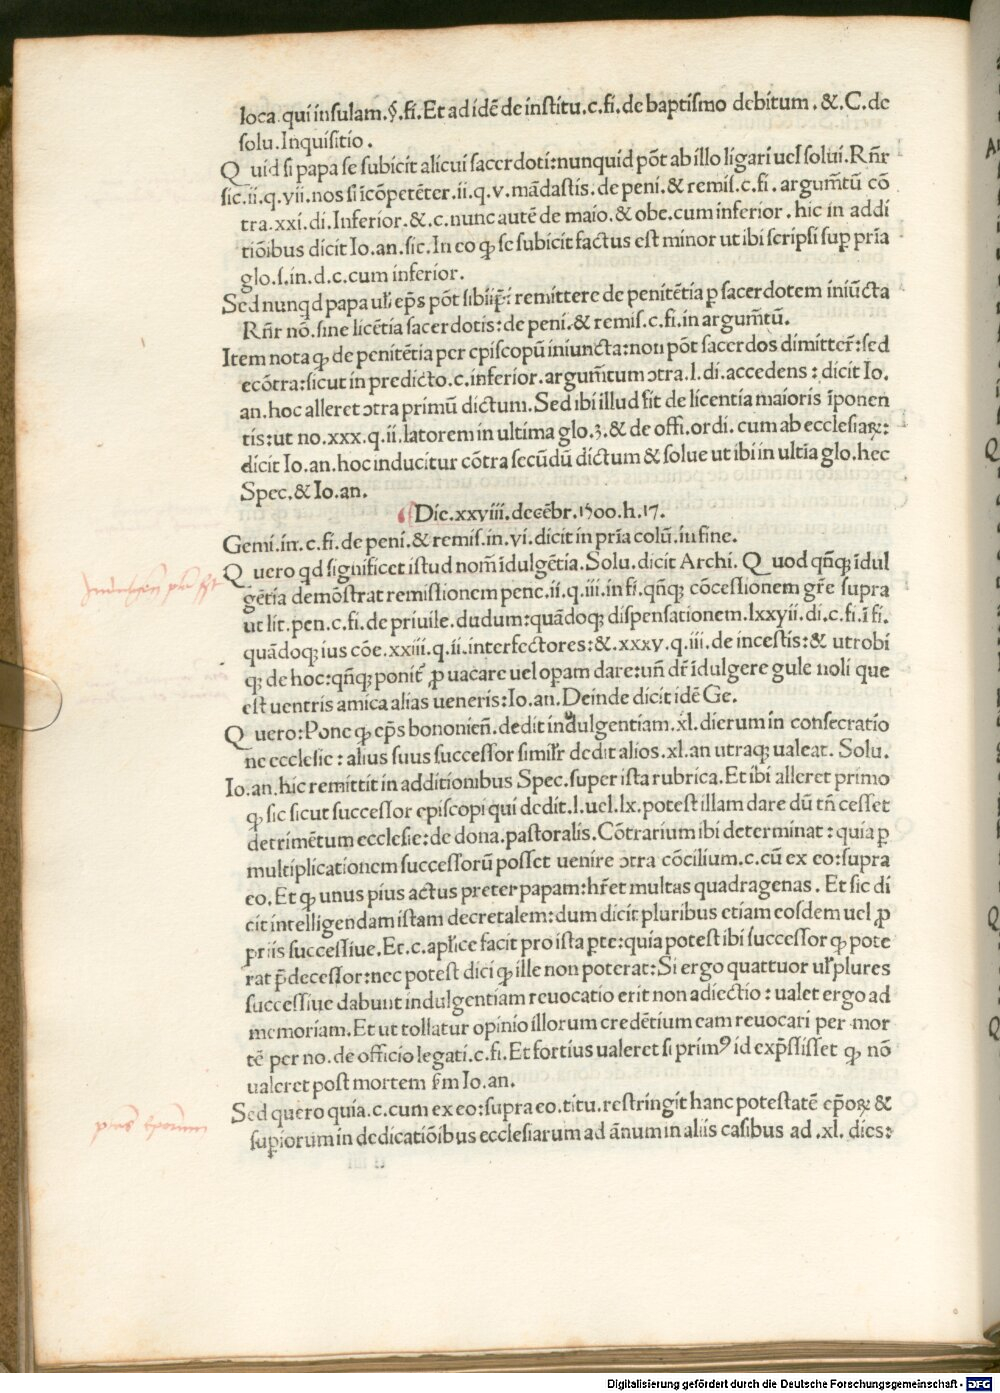 loca.qui insulam.§.fi.Et ad idē de institu.c.fi.de baptismo debitum.&.C.de
solu.Inquisitio.
Quid si papa se subicit alicui sacerdoti:nunquid pōt ab illo ligari uel solui.Rñr
sic.ii.q.vii.nos si īcōpetēter.ii.q.v.mādastis:de peni.& remis.c.fi.argum̄tū cō
tra.xxi.di.Inferior.&.c.nunc autē de maio.& obe.cum inferior.hic in addi
tiōibus dicit Io.an.sic.In eo ꝙ se subicit factus est minor ut ibi scripsi suꝑ pria
glo.s.in.d.c.cum inferior.
Sed nunqd papa ul' ep̄s pōt sibiip̄i remittere de penitētia ꝑ sacerdotem iniūcta
Rñr nō.sine licētia sacerdotis:de peni.& remis.c.fi.in argum̄tū.
Item nota ꝙ de penitētia per episcopū iniuncta:non pōt sacerdos dimitter̄:sed
ecōtra:sicut in predicto.c.inferior.argum̄tum ɔtra.l.di.accedens:dicit Io.
an.hoc alleret ɔtra primū dictum.Sed ibi illud fit de licentia maioris īponen
tis:ut no.xxx.q.ii.latorem in ultima glo.3.& de offi.ordi.cum ab ecclesiaꝝ:
dicit Io.an.hoc inducitur cōtra secūdū dictum & solue ut ibi in ultīa glo.hec
Spec.& Io.an.
Die.xxviii.decēbr.1500.h.17.
Gemi.in.c.fi.de peni.& remis.in.vi.dicit in pria colū.in fine.
Quero qd significet istud nom̄ īdulgētia.Solu.dicit Archi.Quod qn̄qꝫ īdul
gētia demōstrat remissionem pene.ii.q.iii.in fi.qn̄qꝫ cōcessionem gr̄e supra
ut lit.pen.c.fi.de priuile.dudum:quādoqꝫ dispensationem.lxxvii.di.c.fi.ī fi.
quādoqꝫ ius cōe.xxiii.q.ii.interfectores:&.xxxv.q.iii.de incestis:& utrobi
qꝫ de hoc:qn̄qꝫ ponit̄ ꝓ uacare uel opam dare:un̄ dr̄ īdulgere gule noli que
est uentris amica alias ueneris:Io.an.Deinde dicit idē Ge.
Quero:Pone ꝙ ep̄s bononien̄.dedit indulgentiam.xl.dierum in consecratio
ne ecclesie:alius suus successor simil'r dedit alios.xl.an utraqꝫ ualeat. Solu.
Io.an.hic remittit in additionibus Spec.super ista rubrica.Et ibi alleret primo
ꝙ sic sicut successor episcopi qui dedit.l.uel.lx.potest illam dare dū tn̄ cesset
detrimētum ecclesie:de dona.pastoralis.Cōtrarium ibi determinat:quia ꝑ
multiplicationem successorū posset uenire ɔtra cōcilium.c.cū ex eo:supra
eo.Et ꝙ unus pius actus preter papam:hr̄et multas quadragenas.Et sic di
cit intelligendam istam decretalem:dum dicit pluribus etiam eosdem uel ꝓ
priis successiue.Et.c.apl'ice facit pro ista ꝑte:quia potest ibi successor ꝙ pote
rat p̄decessor:nec potest dici ꝙ ille non poterat:Si ergo quattuor ul' plures
successiue dabunt indulgentiam reuocatio erit non adiectio:ualet ergo ad
memoriam.Et ut tollatur opinio illorum credētium eam reuocari per mor
tē per no.de officio legati.c.fi.Et fortius ualeret si primꝰ id exp̄ssisset ꝙ nō
ualeret post mortem s̄m Io.an.
Sed quero quia.c.cum ex eo:supra eo.titu.restringit hanc potestatē ep̄oꝝ &
suꝑiorum in dedicatiōibus ecclesiarum ad ānum in aliis casibus ad.xl. dies:
Digitalisierung gefördert durch die Deutsche Forschungsgemeinschaft - DFG